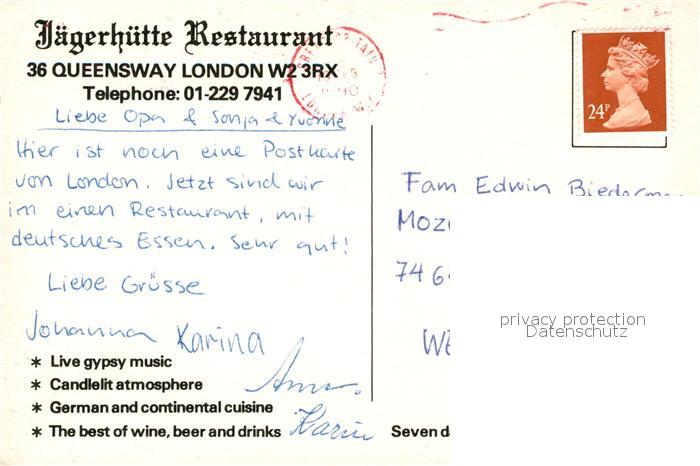 Jägerhütte Restaurant
36 QUEENSWAY LONDON W2 3RX
Telephone: 01-229 7941
Liebe Opa & Sonja & Yvonne
Hier ist noch eine Postkarte
von London. Jetzt sind wir
im einen Restaurant, mit
deutsches Essen. Sehr gut!
Liebe Grüsse
Johanna Karina
* Live gypsy music
* Candlelit atmosphere
* German and continental cuisine
* The best of wine, beer and drinks Karin
Seven da
24P
Fam Edwin Biederman
Moz
74 6
WE
privacy protection
Datenschutz